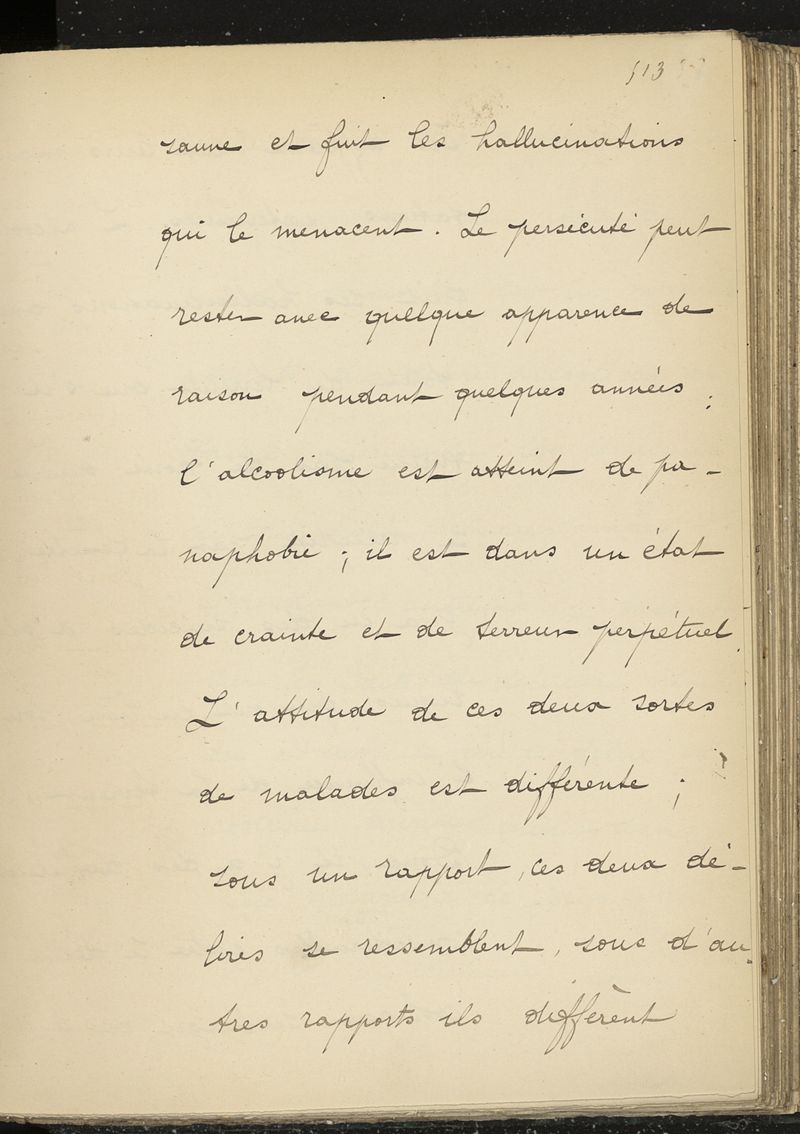 513
sanne et fuit les hallucinations
qui le menacent. Le persécuté peut
rester avec quelque apparence de
raison pendant quelques années ;
l'alcoolisme est atteint de pa-
naphobie ; il est dans un état
de crainte et de terreur perpétuel.
L'attitude de ces deux sortes
de malades est différente ;
sous un rapport, ces deux dé-
lires se ressemblent, sous d'au-
tres rapports ils diffèrent